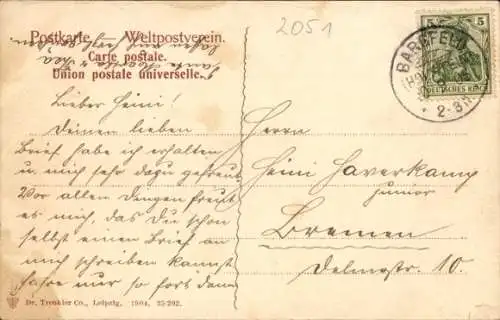 2051
Postkarte. — Weltpostverein.
Carte postale.
Union postale universelle.
5 5
DEUTSCHES REICH
BARNFELD
2-3N
Lieber Heini!
Deinen lieben
Brief habe ich erhalten
u. mich sehr dazu gefreut
Vor allen Dingen freut
es mich, das Du schon
selbst einen Brief an
mich schreiben kannst
fahre nur so fort dann
lassen und
Herrn
Heini Haverkamp
junior
Bremen
Delmestr. 10.
Dr. Trenkler Co., Leipzig, 1904. 25 292.